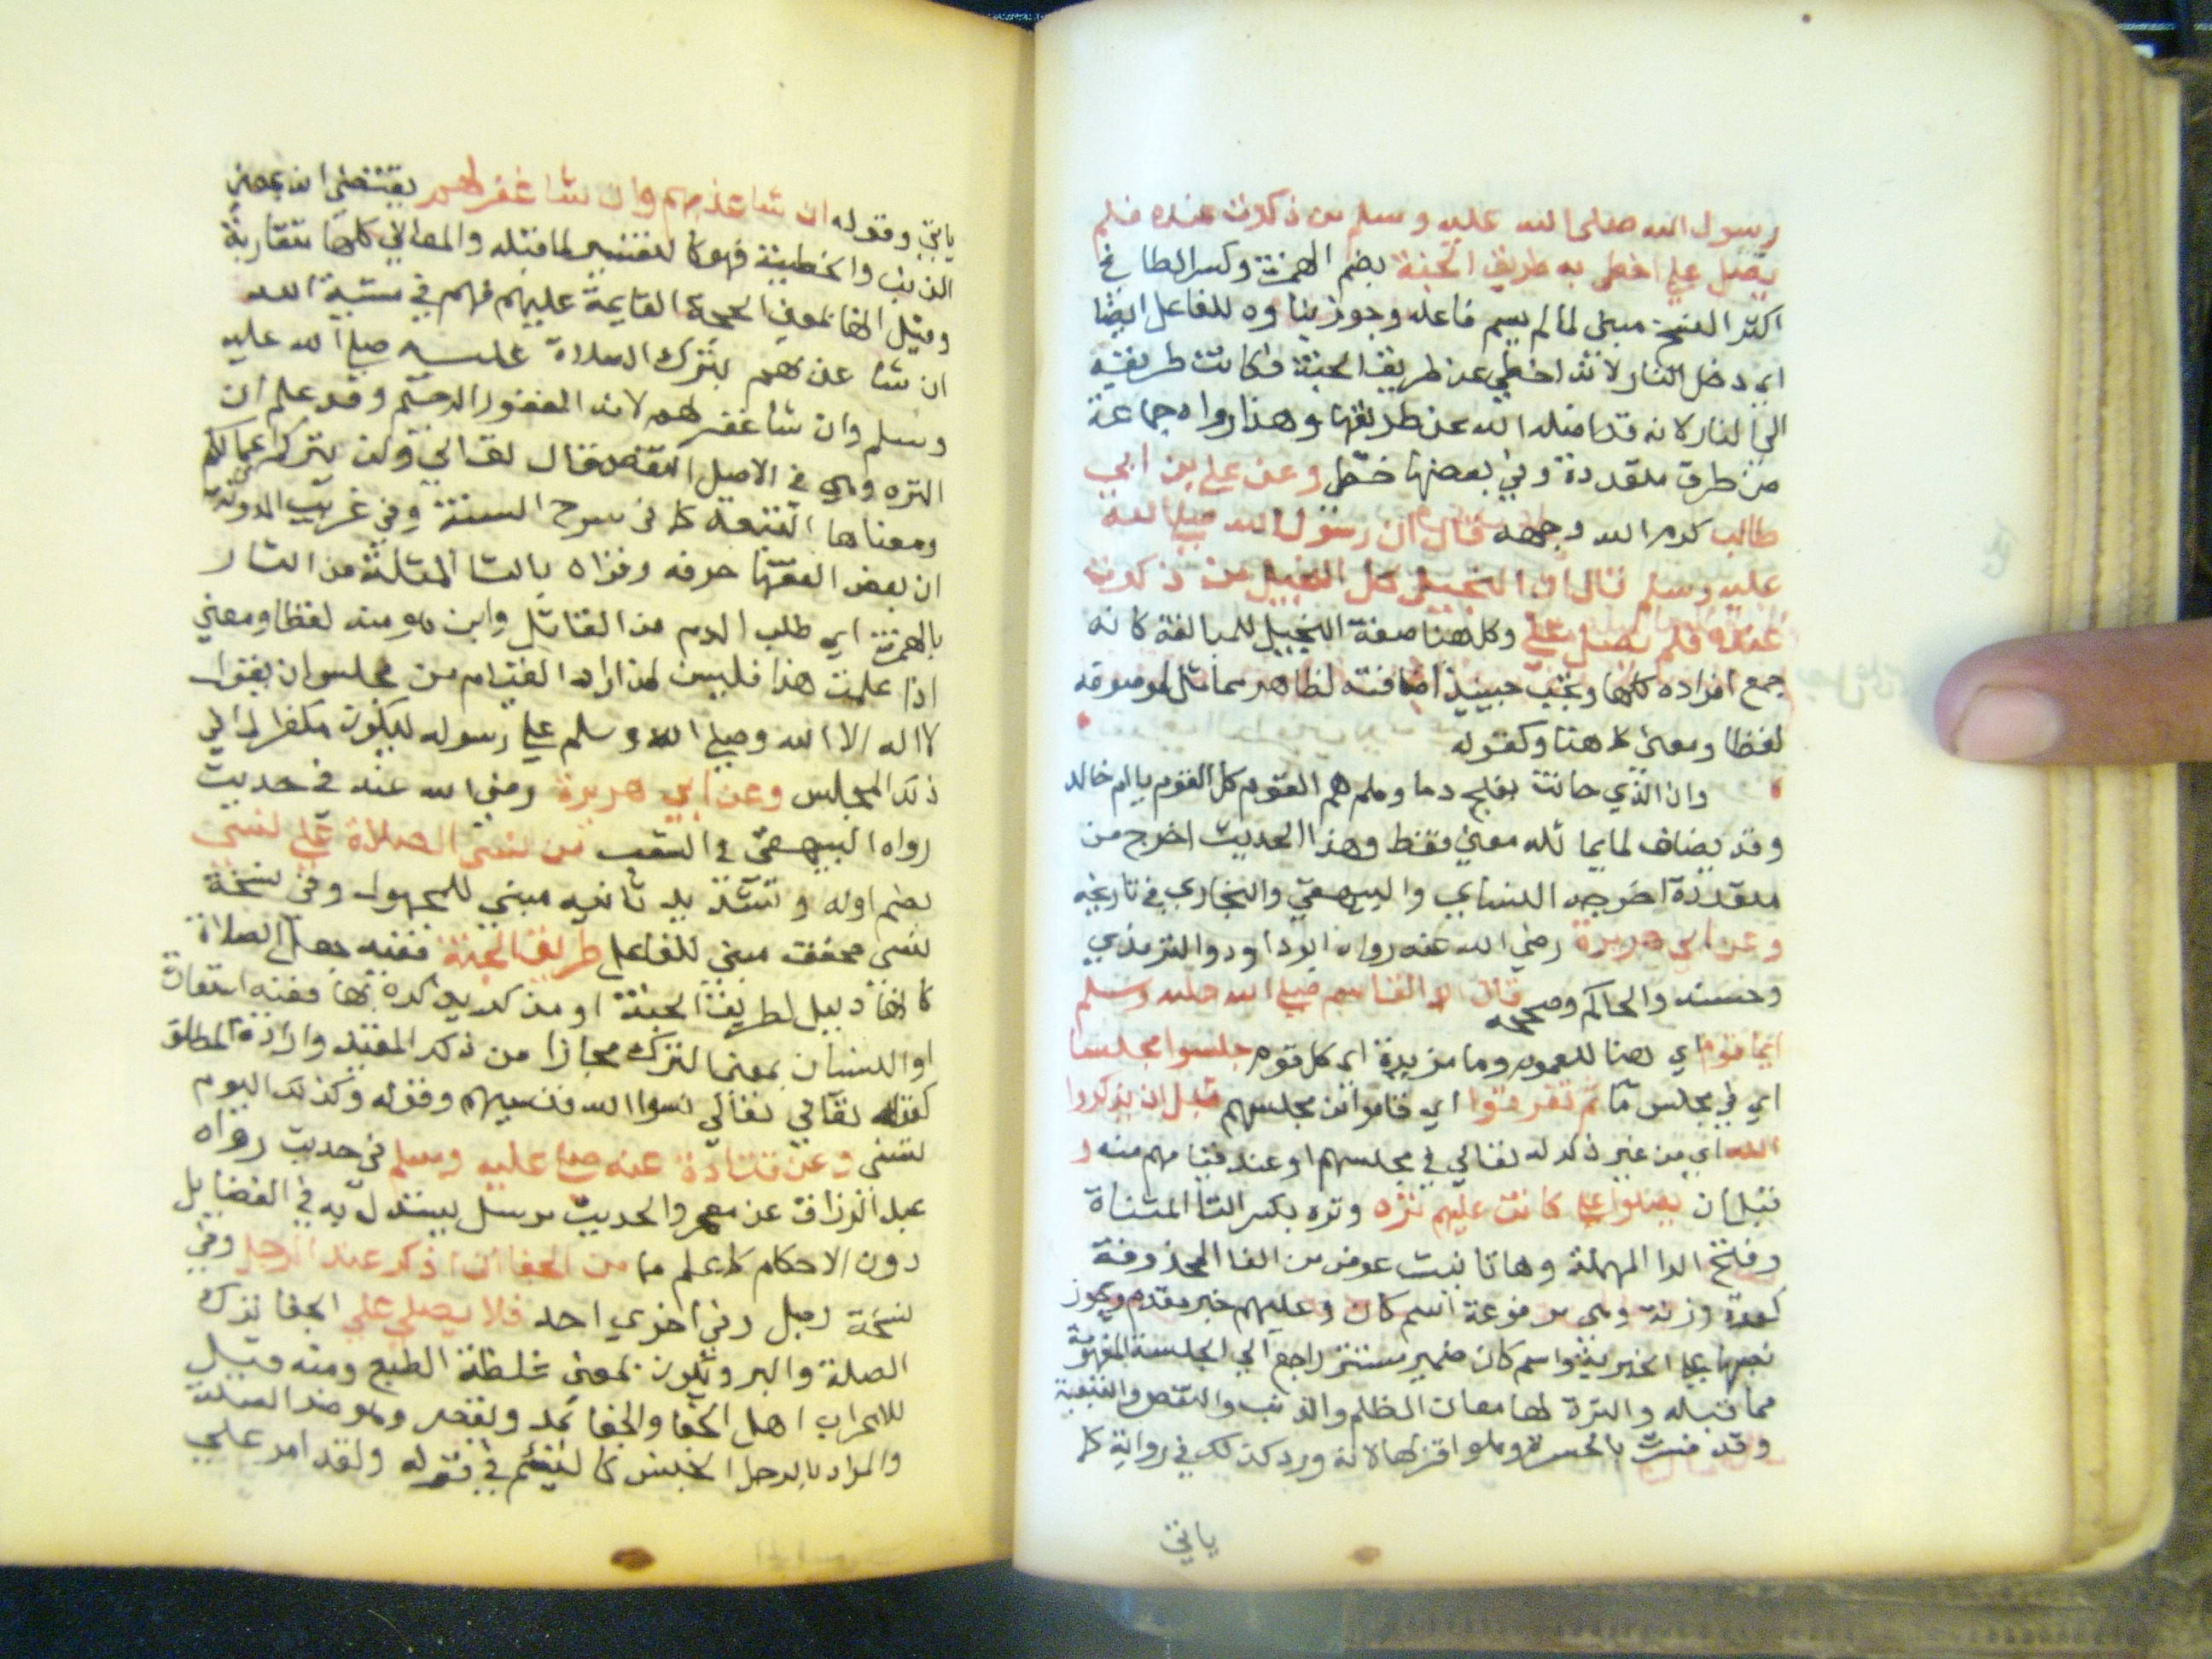 رسول الله صلى الله عليه وسلم من ذكرت عنده فلم
يصل علي اخطي به طريق الجنة بضم الهمزة وكسر الطا في
اكثر النسخ مبني لما لم يسم فاعله وجوز بناوه للفاعل ايضا
اي دخل النار لانه اخطي عن طريق الجنة فكانت طريقته
الي النار لانه قد اضله الله عن طريقها وهذا رواه جماعة
من طرق متعددة وفي بعضها خطي وعن علي بن ابي
طالب كرم الله وجهه قال ان رسول الله صلي الله
عليه وسلم قال ان البخيل كل البخيل من ذكرت
عنده فلم يصل علي وكل هنا صفة البخيل للمبالغة كانه
جمع افراده كلها ويجب حينيذ اضافته لظاهر مماثل لموصوفه
لفظا ومعني كما هنا وكقوله
وان الذي حانت بفلج دماوهم هم القوم كل القوم يا ام خالد
وقد يضاف لما يماثله معني فقط وهذا الحديث اخرج من
متعددة اخرجه النساي والبيهقي والبخاري في تاريخه
وعن ابي هريرة رضي الله عنه رواه ابو داود والترمذي
وحسنه والحاكم وصححه قال ابو القاسم صلي الله عليه وسلم
ايما قوم اي هنا للعموم وما مزيدة اي كل قوم جلسوا مجلسا
اي في مجلس ما ثم تفرقوا اي قاموا من مجلسهم قبل ان يذكروا
الله اي من غير ذكر له تعالي في مجلسهم او عند قيامهم منه و
قبل ان يصلوا علي كانت عليهم تره وتره بكسر التا المثناة
وفتح الرا المهملة وها تانيث عوض من الفا المحذوفة
كعدة وزنة وهي مرفوعة اسم كان وعليهم خبر مقدم ويجوز
نصبها علي الخبرية واسم كان ضمير مستتر راجع الي الجلسة المفهومة
مما قبله والترة لها معان الظلم والذنب والنقص والتبعة
وقد فسرت بالحسرة وهو اقربها لانه ورد كذلك في رواية كما
ياتي
ياتي وقوله ان شا عذبهم وان شا غفر لهم يقتضي انه بمعني
الذنب والخطيئة فهو كالتفسير لما قبله والمعاني كلها متقاربة
وقيل انها بمعني الحجة القايمة عليهم فهم في مشية الله
ان شا عذبهم بترك الصلاة عليه صلي الله عليه
وسلم وان شا غفر لهم لانه الغفور الرحيم وقد علم ان
التره وهي في الاصل النقص قال تعالي ولن يتركم اعمالكم
ومعناها التبعة كما في شرح السنة وفي غريب المدونة
ان بعض الفقها حرفه وقراه بالثا المثلثة من الثار
بالهمزة اي طلب الدم من القاتل واين هو منه لفظا ومعني
اذا علمت هذا فليسن لمن اراد القيام من مجلس ان يقول
لا اله الا الله وصلي الله وسلم علي رسوله ليكون مكفرا لما في
ذلك المجلس وعن ابي هريرة رضي الله عنه في حديث
رواه البيهقي في الشعب من نسي الصلاة علي نسي
بضم اوله وتشديد ثانيه مبني للمجهول وفي نسخة
نسي مخفف مبني للفاعل طريق الجنة ففيه جعل الصلاة
كانها دليل لطريق الجنة او من كد بها ففيه استعارة
او النسيان بمعني الترك مجازا من ذكر المقيد وارادة المطلق
كقوله تعالي نسوا الله فنسيهم وقوله وكذلك اليوم
تنسي وعن قتادة عنه صلي عليه وسلم في حديث رواه
عبد الرزاق عن معمر والحديث مرسل يستدل به في الفضايل
دون الاحكام كما علم مما من الجفا ان اذكر عند الرجل وفي
نسخة رجل وفي اخري احد فلا يصلي علي الجفا ترك
الصلة والبر ويكون بمعني غلظة الطبع ومنه قيل
للاعراب اهل الجفا والجفا يمد ويقصر وهو ضد الصلة
والمراد بالرجل الجنس كاللئيم في قوله ولقد امر علي